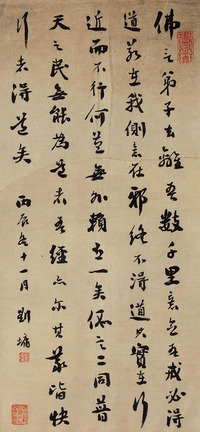 佛言弟子去離吾數千里意念吾戒必得
道若在我側意在邪終不得道其實在行
近而不行何益無外賴有一矣假其二同普
天之民無能為道者吾經亦尔其義皆快
行者得道矣 丙辰冬十一月劉墉